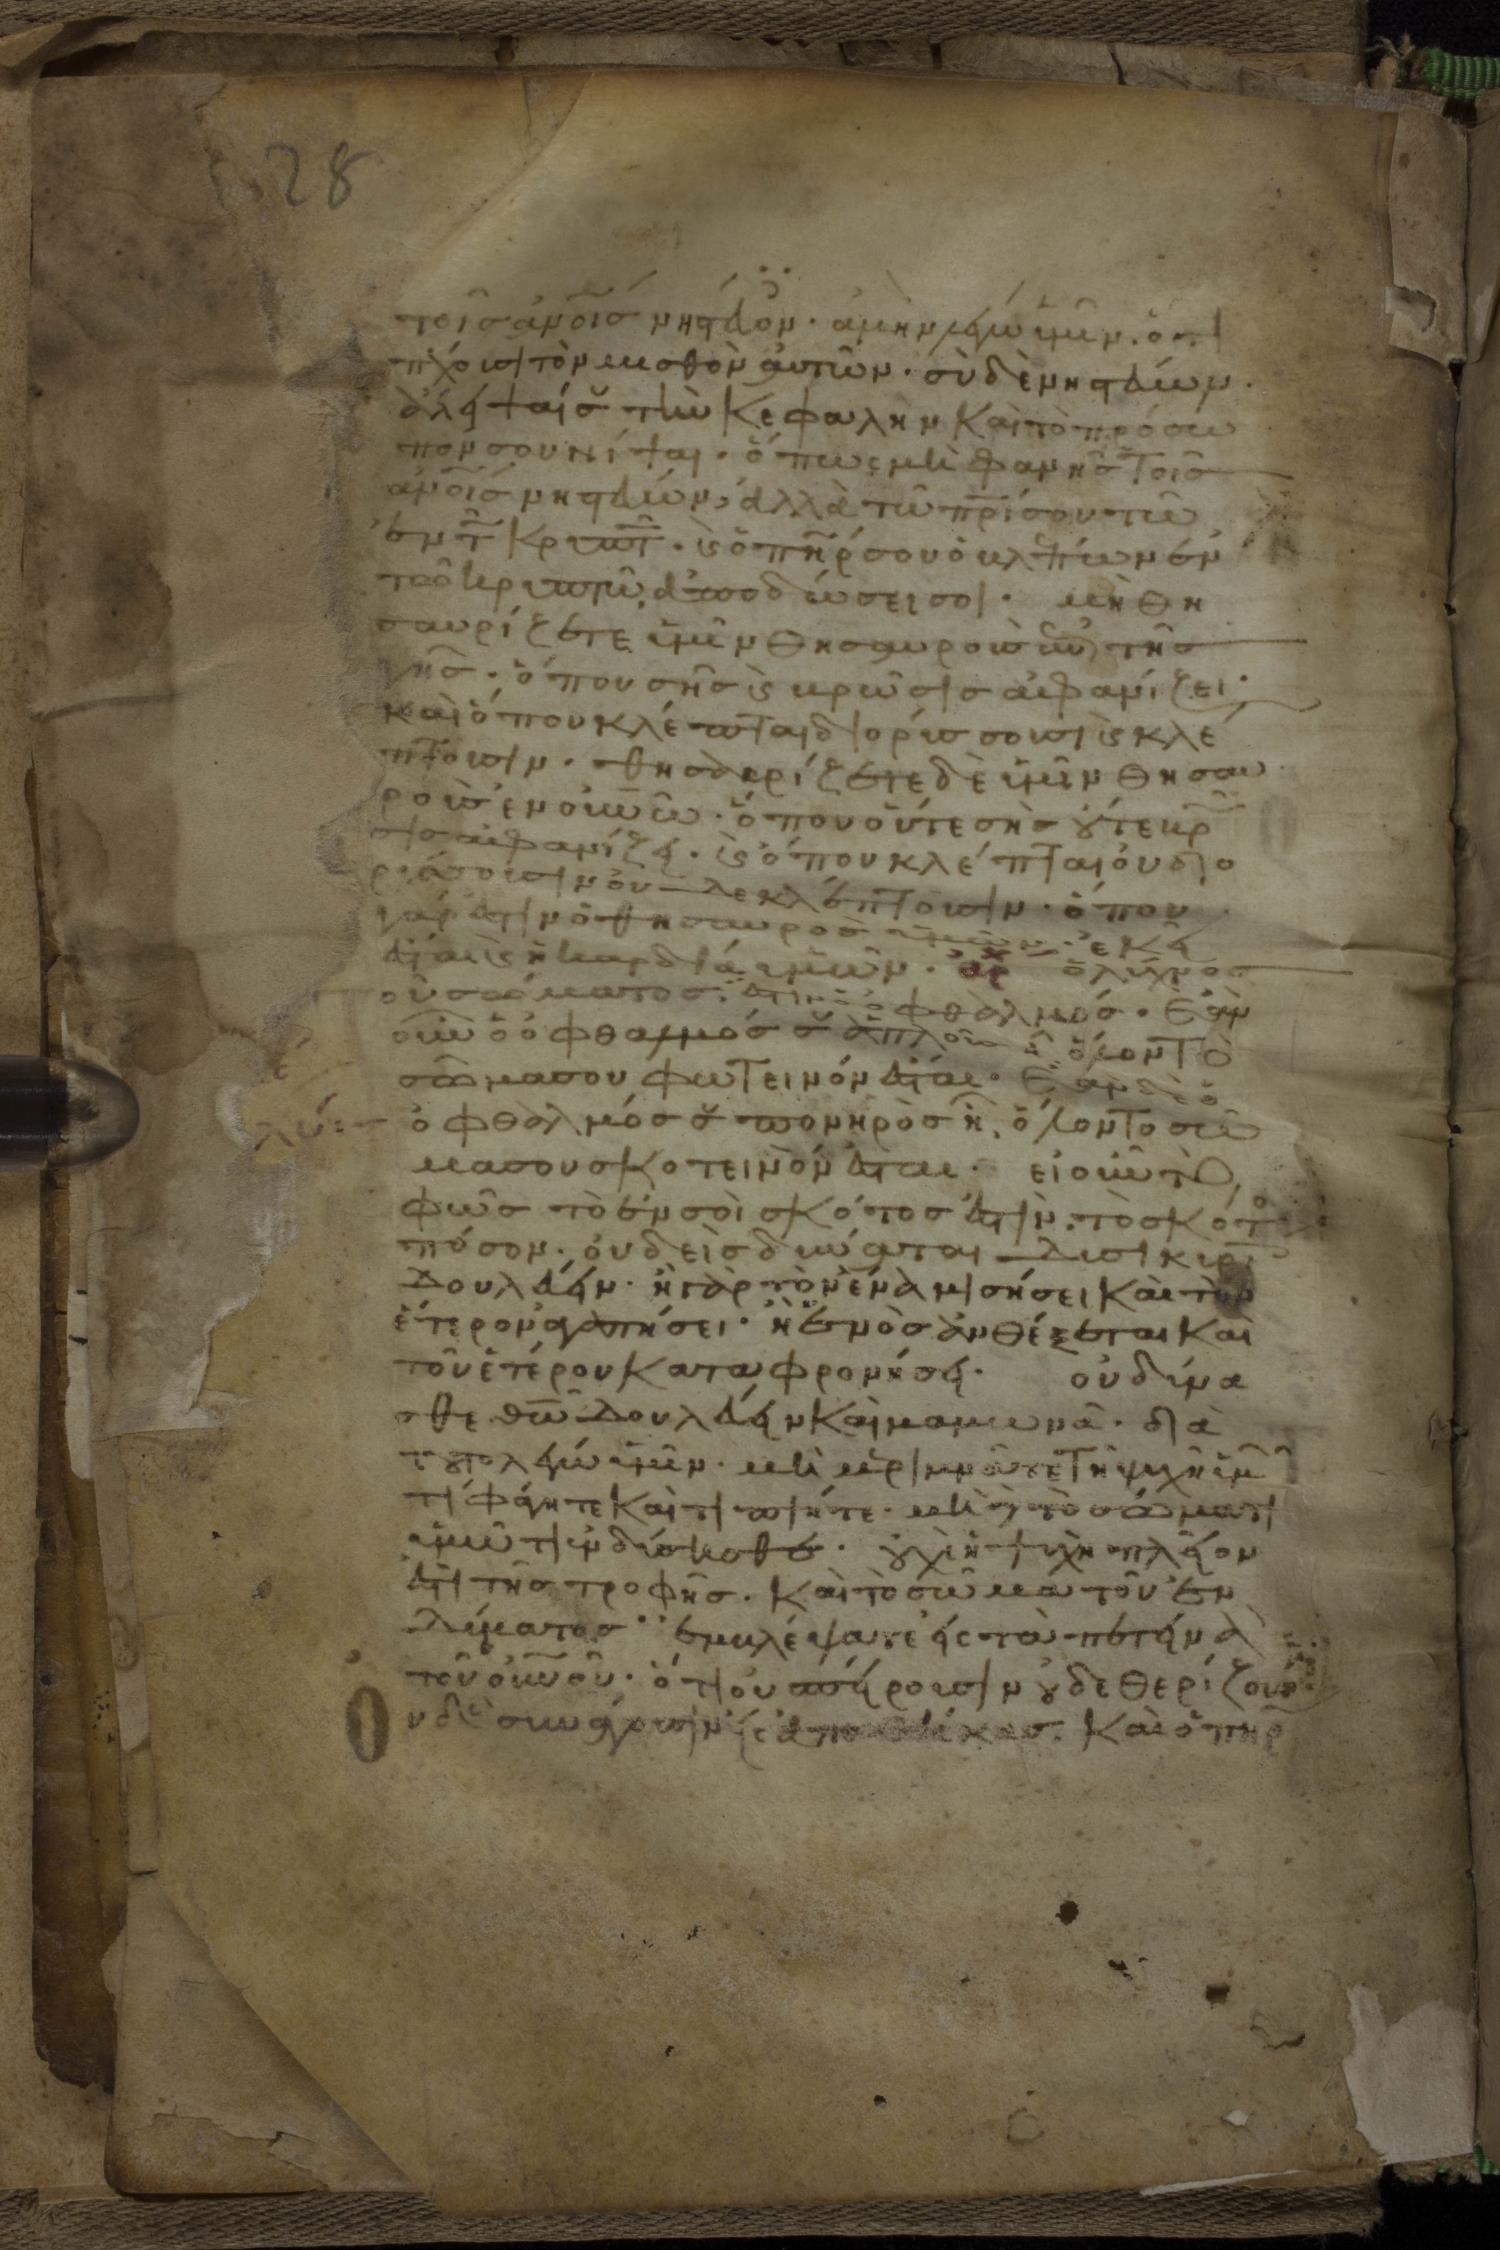 28
τοῖς ἀνοῖς νηστεύον· ἀμὴν λέγω ὑμῖν· ὅτι
ἀπέχουσι τὸν μισθὸν αὐτῶν· σὺ δὲ νηστεύων·
ἄλειψαί σου τὴν κεφαλὴν καὶ τὸ πρόσω
πόν σου νίψαι· ὅπως μὴ φανῆς τοῖς
ἀνοῖς νηστεύων, ἀλλὰ τῶ πρί σου τῶ
ἐν τῶ κρυπτῶ· κ ὁ πηρ σου ὁ βλέπων ἐν
τῶ κρυπτῶ, ἀποδώσει σοι· μὴ θη
σαυρίζετε ὑμῖν θησαυροὺς ἐπὶ τῆς
γῆς· ὅπου σῆς κ βρῶσις ἀφανίζει·
καὶ ὅπου κλέπται διορύσσουσι κ κλέ
πτουσιν· θησαυρίζετε δὲ ὑμῖν θησαυ
ροὺς ἐν οὐνῶ· ὅπου οὔτε σὴς οὔτε βρῶ
σις ἀφανίζει· κ ὅπου κλέπται οὐ διο
ρύσσουσιν οὐδὲ κλέπτουσιν· ὅπου
γάρ ἐστιν ὁ θησαυρὸς ὑμῶν· ἐκεῖ
ἔσται κ ἡ καρδία ὑμῶν· ἀρ ὁ λύχνος
οῦ σώματος· ἐστιν ὁ ὀφθαλμός· Ἐὰν
οὖν ὁ ὀφθαλμός σου ἁπλοῦς ἦ ὅλον τὸ
σῶμα σου φωτεινόν ἔσται· Ἐὰν δὲ ὁ
ὀφθαλμός σου πονηρὸς ἦ, ὅλον το σῶ
μα σου σκοτεινόν ἔσται· εἰ οὖν τὸ
φῶς τὸ ἐν σοὶ σκότος ἐστίν· τὸ σκότο
πόσον· οὐδεὶς δύναται δυσὶ κυρί
δουλεύειν· ἢ γὰρ τὸν ἕνα μισήσει καὶ τὸν
ἕτερον ἀγαπήσει· ἢ ἑνὸς ἀνθέξεται καὶ
τοῦ ἑτέρου καταφρονήσει· οὐ δύνα
σθε θῶ δουλεύειν καὶ μαμωνᾶ· διὰ
τοῦτο λέγω ὑμῖν· μὴ μεριμνᾶτε τῆ ψυχῆ ὑμῶ
τί φάγητε καὶ τί πίητε· μὴ δὲ τὸ σώματι
ὑμῶ τί ἐνδύσησθε· οὐχὶ ἡ ψυχὴ πλεῖον
ἐστι τῆς τροφῆς· καὶ τὸ σῶμα τοῦ ἐν
δύματος ἐμβλέψατε εἰς τὰ πετεινὰ
τοῦ οὐνοῦ· ὅτι οὐ σπείρουσιν οὐδὲ θερίζουσιν
Ουδὲ συνάγουσιν εἰς ἀποθήκας· καὶ ὁ πηρ